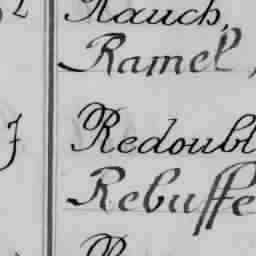 Rauch,
Ramel,
Redoubl
Rebuffe